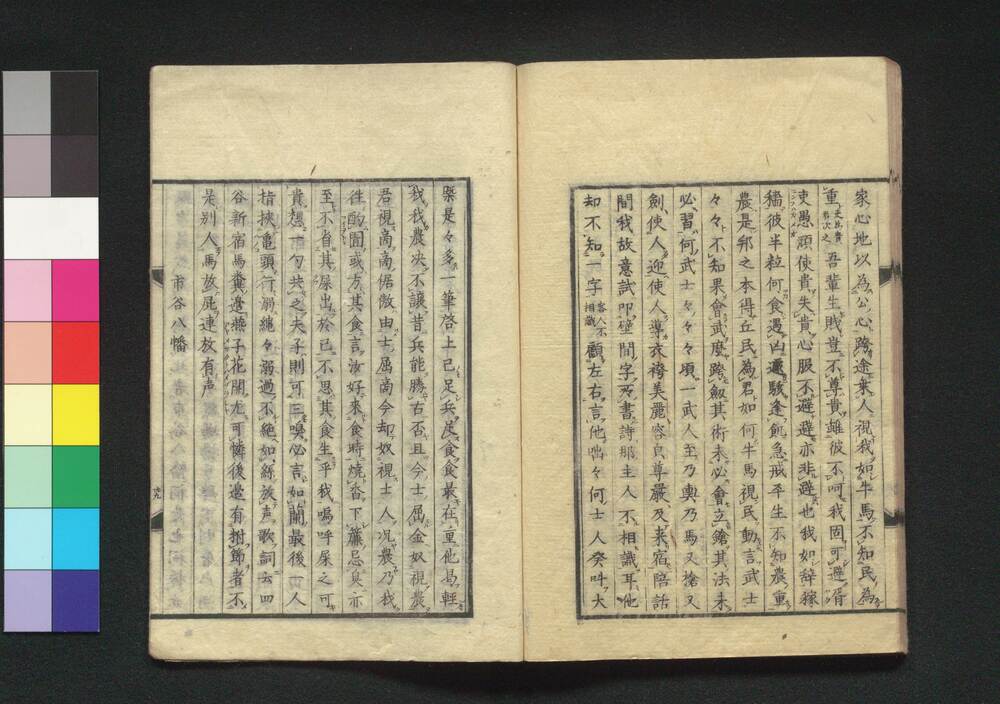 家心地以為公心、跨途棄人視我如牛馬不知民為
重吏為貴君次之吾輩生賎豈不尊貴雖彼不呵我固可避胥
吏愚頑使貴失貴心服不避避亦非避也我如辞稼
穡彼半粒何食遇凶邅駿逢飢急戒平生不知農重
農是邦之本得丘民為君如何牛馬視民動言武士
々々不知果會武麽跨馭其術未必會立鎗其法未
必習何武士々々々頃一武人至乃輿乃馬又槍又
劍使人迎使人導衣袴美麗容皃尊嚴及来宿陪話
間我故意試卽壁間字画書詩那主人不相識耳他
却不知一字客人不相識顧左右言他咄々何士人癸呌大
槩是々多一筆啓上已足兵足食食最在重他曷輕
我我農决不讓昔兵能勝古否且今士屈金奴視農
君視商商倨傲由士屈商今却奴視士人况農乃我
徃酌圊或方其食言汝好来食時燒香下簾忌臭亦
至不省其屎出於已不思其食生乎我嗚呼屎之可
貴想市匂共之夫子則可三嗅必言如蘭最後一人
楷挾亀頭行溺繩々溺過不絶如絲放声歌詞云四
谷新宿馬糞邊燕子花開尤可憐後邉有拊節者不
是别人馬放屁連放有声
市谷八幡